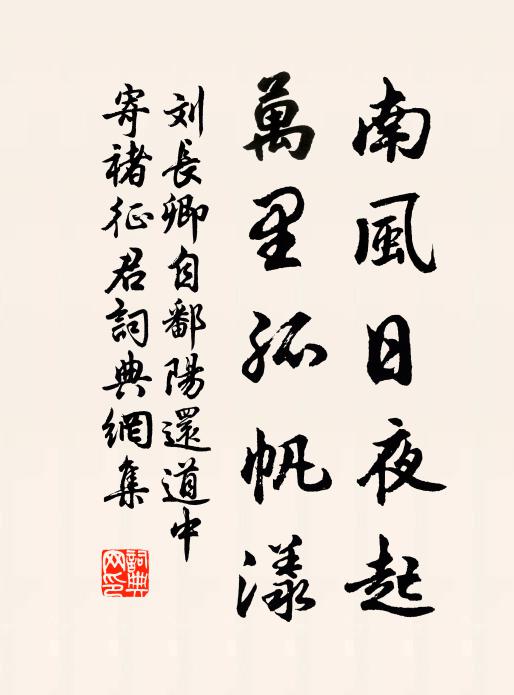 南風日夜起
萬里孤帆漾
刘長卿自鄱陽還道中
寄褚征君詞典網集
詞典
网印